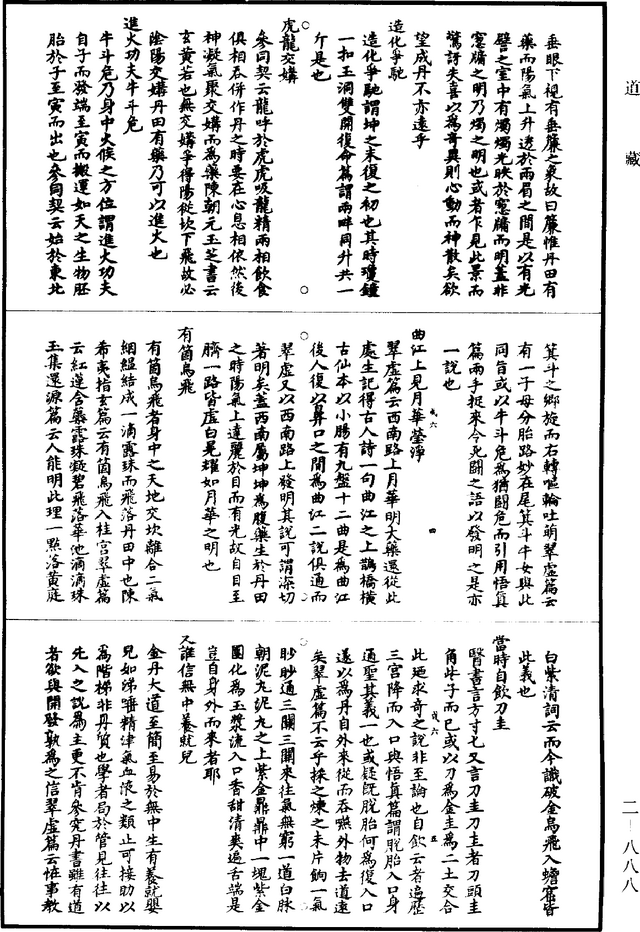 道藏
垂眼下視有垂簾之象故曰簾帷丹田有
藥而陽氣上升透於兩眉之間是以有光
譬之室中有燭燭光映於窻牖而明蓋非
窻牖之明乃燭之明也或者乍見此景而
驚訝失喜以為奇異則心動而神散矣欲
望成丹不亦遠乎
造化爭馳
造化爭馳謂坤之末復之初也其時瓊鐘
一扣玉洞雙開復命篇謂兩畔同升共一
斤是也
虎龍交媾
參同契云龍呼於虎虎吸龍精兩相飲食
俱相吞併作丹之時要在心息相依然後
神凝氣聚交媾而為藥陳朝元玉芝書云
玄黃若也無交媾爭得陽從坎下飛故必
陰陽交媾丹田有藥乃可以進火也
進火功夫牛斗危
牛斗危乃身中火候之方位謂進火功夫
自子而發端至寅而搬運如天之生物胚
胎於子至寅而出也參同契云始於東北
箕斗之鄉旋而右轉嘔輪吐萌翠虛篇云
有一子母分胎路妙在尾箕斗牛女與此
同旨或以牛斗危為猶鬭危而引用悟真
篇兩手捉來令死鬭之語以發明之是亦
一說也
曲江上見月華瑩淨
翠虛篇云西南路上月華明大藥還從此
處生記得古人詩一句曲江之上鵲橋橫
古仙本以小腸有九盤十二曲是為曲江
後人復以鼻口之間為曲江二說俱通而
翠虛又以西南路上發明其說可謂深切
著明矣蓋西南屬坤坤為腹藥生於丹田
之時陽氣上達麗於目而有光故自目至
臍一路皆虛白晃耀如月華之明也
有箇烏飛
有箇烏飛者身中之天地交坎離合二氣
絪縕結成一滴露珠而飛落丹田中也陳
希夷指玄篇云有箇烏飛入桂宮翠虛篇
云紅蓮含蘂露珠凝碧飛落華池滴滴珠
玉集還源篇云人能明此理一點落黃庭
白紫清詞云而今識破金烏飛入蟾窟皆
此義也
當時自飲刀圭
醫書言方寸七又言刀圭刀圭者刀頭圭
角些子而已或以刀為金圭為二土交合
此迺求奇之說非至論也自飲云者遍歷
三宮降而入口與悟真篇謂脫胎入口身
通聖其義一也或疑既脫胎何為復入口
遂以為丹自外來從而吞嚥外物去道遠
矣翠虛篇不云乎採之煉之未片餉一氣
眇眇通三關三關來往氣無窮一道白脉
朝泥丸泥丸之上紫金鼎鼎中一塊紫金
團化為玉漿流入口香甜清爽遍舌端是
豈自身外而來者耶
又誰信無中養就兒
金丹大道至簡至易於無中生有養就嬰
兒如涕唾精津氣血液之類止可接助以
為階梯非丹質也學者局於管見往往以
先入之說為主更不肯參究丹書雖有道
者欲與開發孰為之信翠虛篇云怪事教
戌六 四
戌六 五
二—八八八